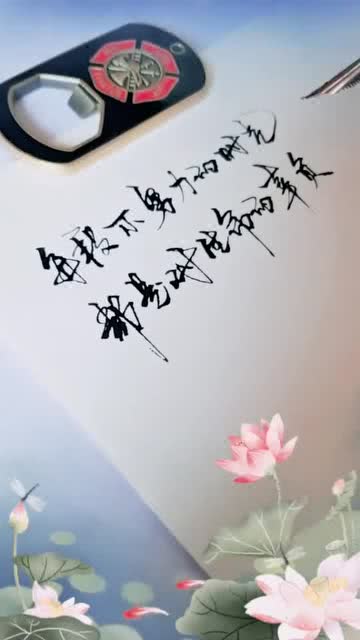 每段不努力的时光
都是对生命的辜负